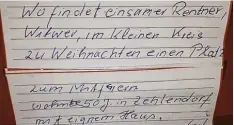 Wo findet einsamer Rentner,
Witwer, im kleinen Kreis
zu Weihnachten einen Platz
zum Mitfeiern
wohne in Zehlendorf
mit eignem Haus.